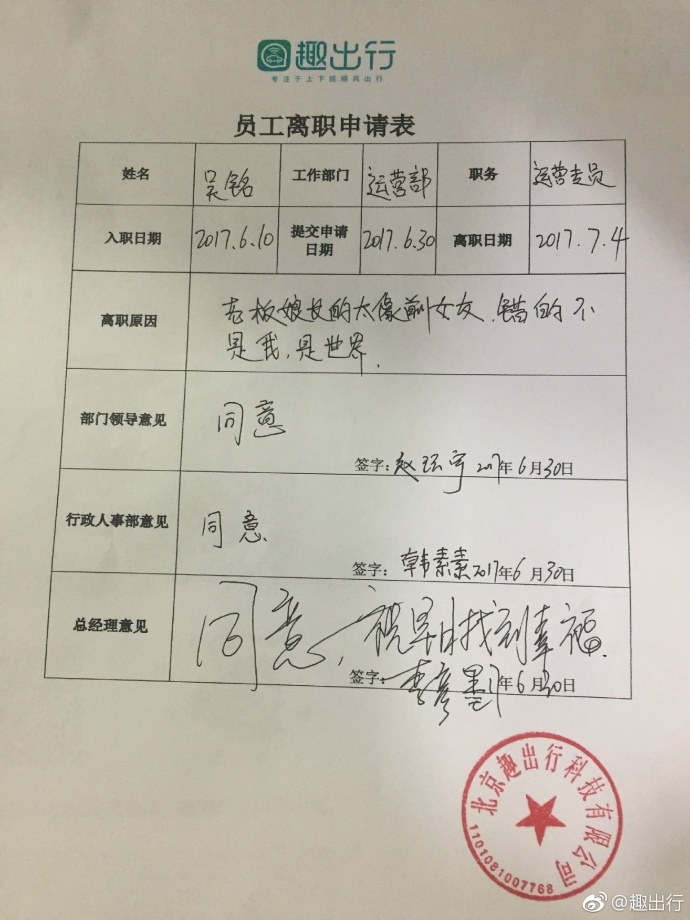 趣出行
专注于上下班顺风出行
员工离职申请表
姓名 吴铭 工作部门 运营部 职务 运营专员
入职日期 2017.6.10 提交申请日期 2017.6.30 离职日期 2017.7.4
离职原因 老板娘长的太像前女友,错的不
是我,是世界.
部门领导意见 同意
签字: 赵 宇 2017年6月30日
行政人事部意见 同意
签字: 韩素素 2017年6月30日
总经理意见 同意,祝早日找到幸福.
签字: 李彦 17年6月30日
北京趣出行科技有限公司
1101081007768
@趣出行